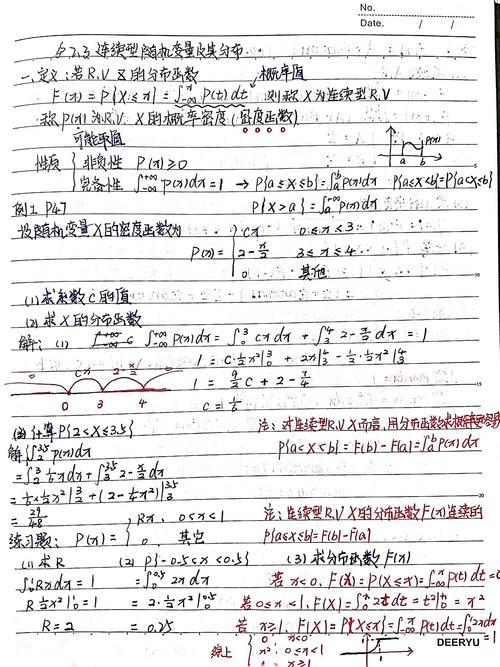 No.
Date. / /
§2.3 连续型随机变量及其分布
一、定义:若R.V X的分布函数 概率值
F(x)=P{X≤x}=∫_{-∞}^{x} P(t)dt 则称X为连续型R.V
称P(x)为R.V X的概率密度(密度函数)
可能取值
性质 { 非负性 P(x)≥0
完备性 ∫_{-∞}^{+∞} P(x)dx=1 → P{a≤X≤b}=∫_a^b P(x)dx P{a≤X<b}=P{a<X≤b}
P{X>a}=∫_a^{+∞} P(x)dx
P(x)
a b
例1 P47
设随机变量X的密度函数为
P(x)= { Cx 0≤x<3
2-x/2 3≤x≤4
0 其他
(1)求系数C的值
(2)求X的分布函数
解:(1) ∫_{-∞}^{+∞} P(x)dx=∫_0^3 cxdx+∫_3^4 2-x/2 dx=1
1=C·1/2x²|_0^3+2x|_3^4-1/2·1/2x²|_3^4
1=9/2C+2-7/4
C=1/6
0 Cx 2-x/2 0
0 3 4
(3)计算P{2<X≤3.5}
解 ∫_2^{3.5} P(x)dx
=∫_2^3 1/6xdx+∫_3^{3.5} 2-x/2 dx
=1/6×1/2x²|_2^3+(2-1/4x²)|_3^{3.5}
=29/48
注:对连续型R.V X而言,用分布函数求概率
P{a<X<b}=F(b)-F(a)=∫_a^b P(x)dx
注:连续型R.V X的分布函数F(x)连续的
P{a≤X≤b}=F(b)-F(a)
练习题: P(x)= { Rx, 0≤x<1
0, 其它
(1)求R (2) P{-0.5≤X<0.5} (3)求分布函数F(x)
∫_0^1 Rxdx=1 =∫_0^{0.5} 2xdx 若x<0,F(x)=P(X≤x)=∫_{-∞}^x P(t)dt=0
R·1/2x²|_0^1=1 =2·1/2x²|_0^{0.5} 若0≤x<1,F(x)=∫_0^x 2tdt=t²|_0^x=x²
R=2 =0.25 若x≥1,F(x)=P{X≤x}=∫_{-∞}^x P(t)dt=∫_0^1 2xdx=1
综上 { 0 x<0
x² 0≤x<1
1 x≥1
DEERYU